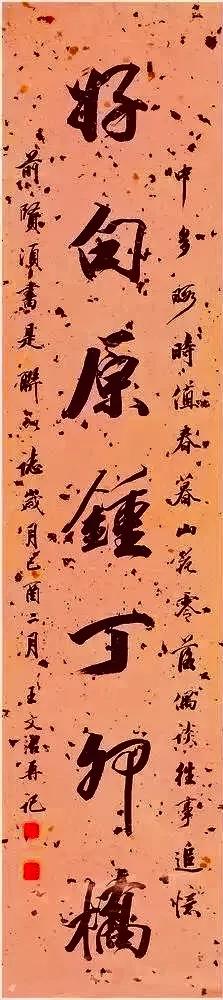 中多暇時值春暮山花零落偶談往事追憶
好句原鍾丁卯橋
前賢須書是聯以誌歲月己酉二月 王文治再記